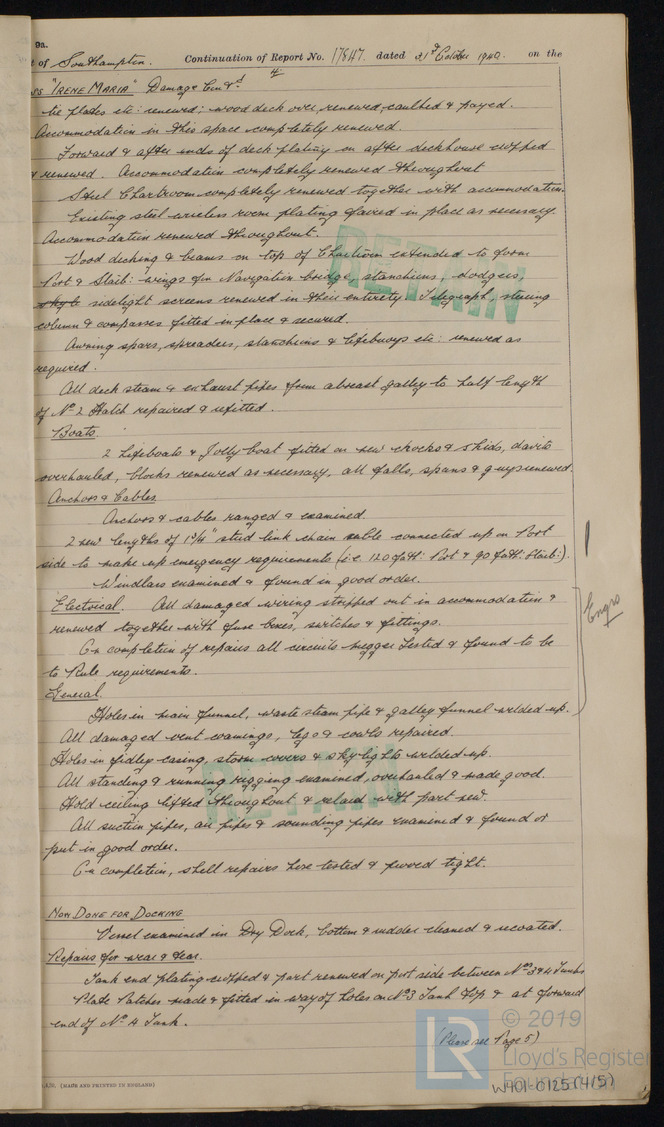 9a.
t of Southampton. Continuation of Report No. 17847. dated 21st October 1940. on the
4
SS "IRENE MARIA" Damage Con'd
tie plates etc: renewed; wood deck over, renewed, caulked & payed.
Accommodation in this space completely renewed.
Forward & after ends of deck plating on after deckhouse cropped
& renewed. Accommodation completely renewed throughout
Steel Chartroom completely renewed together with accommodation.
Existing steel wireless room plating faired in place as necessary.
Accommodation renewed throughout.
Wood decking & beams on top of Chartroom extended to form
Port & Starb: wings for Navigation bridge, stanchions, dodgers,
sidelight screens renewed in their entirety. Telegraph, steering
column & compasses fitted in place & secured.
Awning spars, spreaders, stanchions & lifebuoys etc: renewed as
required.
All deck steam & exhaust pipes from abreast galley to half length
of No 2 Hatch repaired & refitted.
Boats.
2 Lifeboats & Jolly boat fitted on new chocks & skids, davits
overhauled, blocks renewed as necessary, all falls, spans & guys renewed
Anchors & Cables.
Anchors & cables ranged & examined
2 new lengths of 1 3/4" stud link chain cable connected up on Port
side to make up emergency requirements (i.e. 120 fath: Port & 90 fath: Starb:).
Windlass examined & found in good order.
Electrical. All damaged wiring stripped out in accommodation &
renewed together with fuse boxes, switches & fittings.
Engrs
On completion of repairs all circuits megger tested & found to be
to Rule requirements.
General.
Holes in main funnel, waste steam pipe & galley funnel welded up.
All damaged vent coamings, legs & cowls repaired.
Holes in fidley casing, storm covers & skylights welded up.
All standing & running rigging examined, overhauled & made good.
Hold ceiling lifted throughout & relaid with part new.
All suction pipes, air pipes & sounding pipes examined & found or
put in good order.
On completion, shell repairs hose tested & proved tight.
NOW DONE FOR DOCKING
Vessel examined in Dry Dock, bottom & rudder cleaned & recoated.
Repairs for wear & tear.
Tank end plating cropped & part renewed on port side between Nos 3 & 4 Tanks
Plate Patches made & fitted in way of holes on No 3 Tank top & at forward
end of No 4 Tank.
(Please see Page 5)
RETAIN
RETAIN
(MADE AND PRINTED IN ENGLAND)
© 2019
LR
Lloyd's Register
Foundation
W401-0125(4/5)